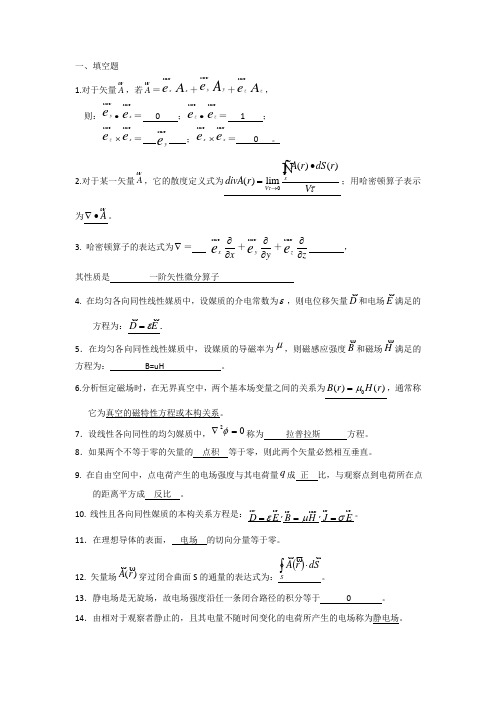 一、填空题
1.对于矢量A，若A＝e_x A_x＋e_y A_y＋e_z A_z，
则：e_y•e_x＝ 0 ；e_z•e_z＝ 1 ；
2.对于某一矢量A，它的散度定义式为divA(r)=lim_{Vτ→0} ∮_s A(r)•dS(r) / Vτ；用哈密顿算子表示
为∇•A。
3. 哈密顿算子的表达式为∇＝ e_x ∂/∂x＋e_y ∂/∂y＋e_z ∂/∂z ，
其性质是 一阶矢性微分算子
4. 在均匀各向同性线性媒质中，设媒质的介电常数为ε，则电位移矢量D和电场E满足的
方程为：D=εE.
5．在均匀各向同性线性媒质中，设媒质的导磁率为μ，则磁感应强度B和磁场H满足的
方程为： B=uH 。
6.分析恒定磁场时，在无界真空中，两个基本场变量之间的关系为B(r)=μ₀H(r)，通常称
它为真空的磁特性方程或本构关系。
7．设线性各向同性的均匀媒质中，∇²φ=0称为 拉普拉斯 方程。
8．如果两个不等于零的矢量的 点积 等于零，则此两个矢量必然相互垂直。
9. 在自由空间中，点电荷产生的电场强度与其电荷量q成 正 比，与观察点到电荷所在点
的距离平方成 反比 。
10. 线性且各向同性媒质的本构关系方程是：D=εE,B=μH,J=σE。
11．在理想导体的表面， 电场 的切向分量等于零。
12. 矢量场A(r)穿过闭合曲面S的通量的表达式为：∮_S A(r)·dS 。
13．静电场是无旋场，故电场强度沿任一条闭合路径的积分等于 0 。
14．由相对于观察者静止的，且其电量不随时间变化的电荷所产生的电场称为静电场。